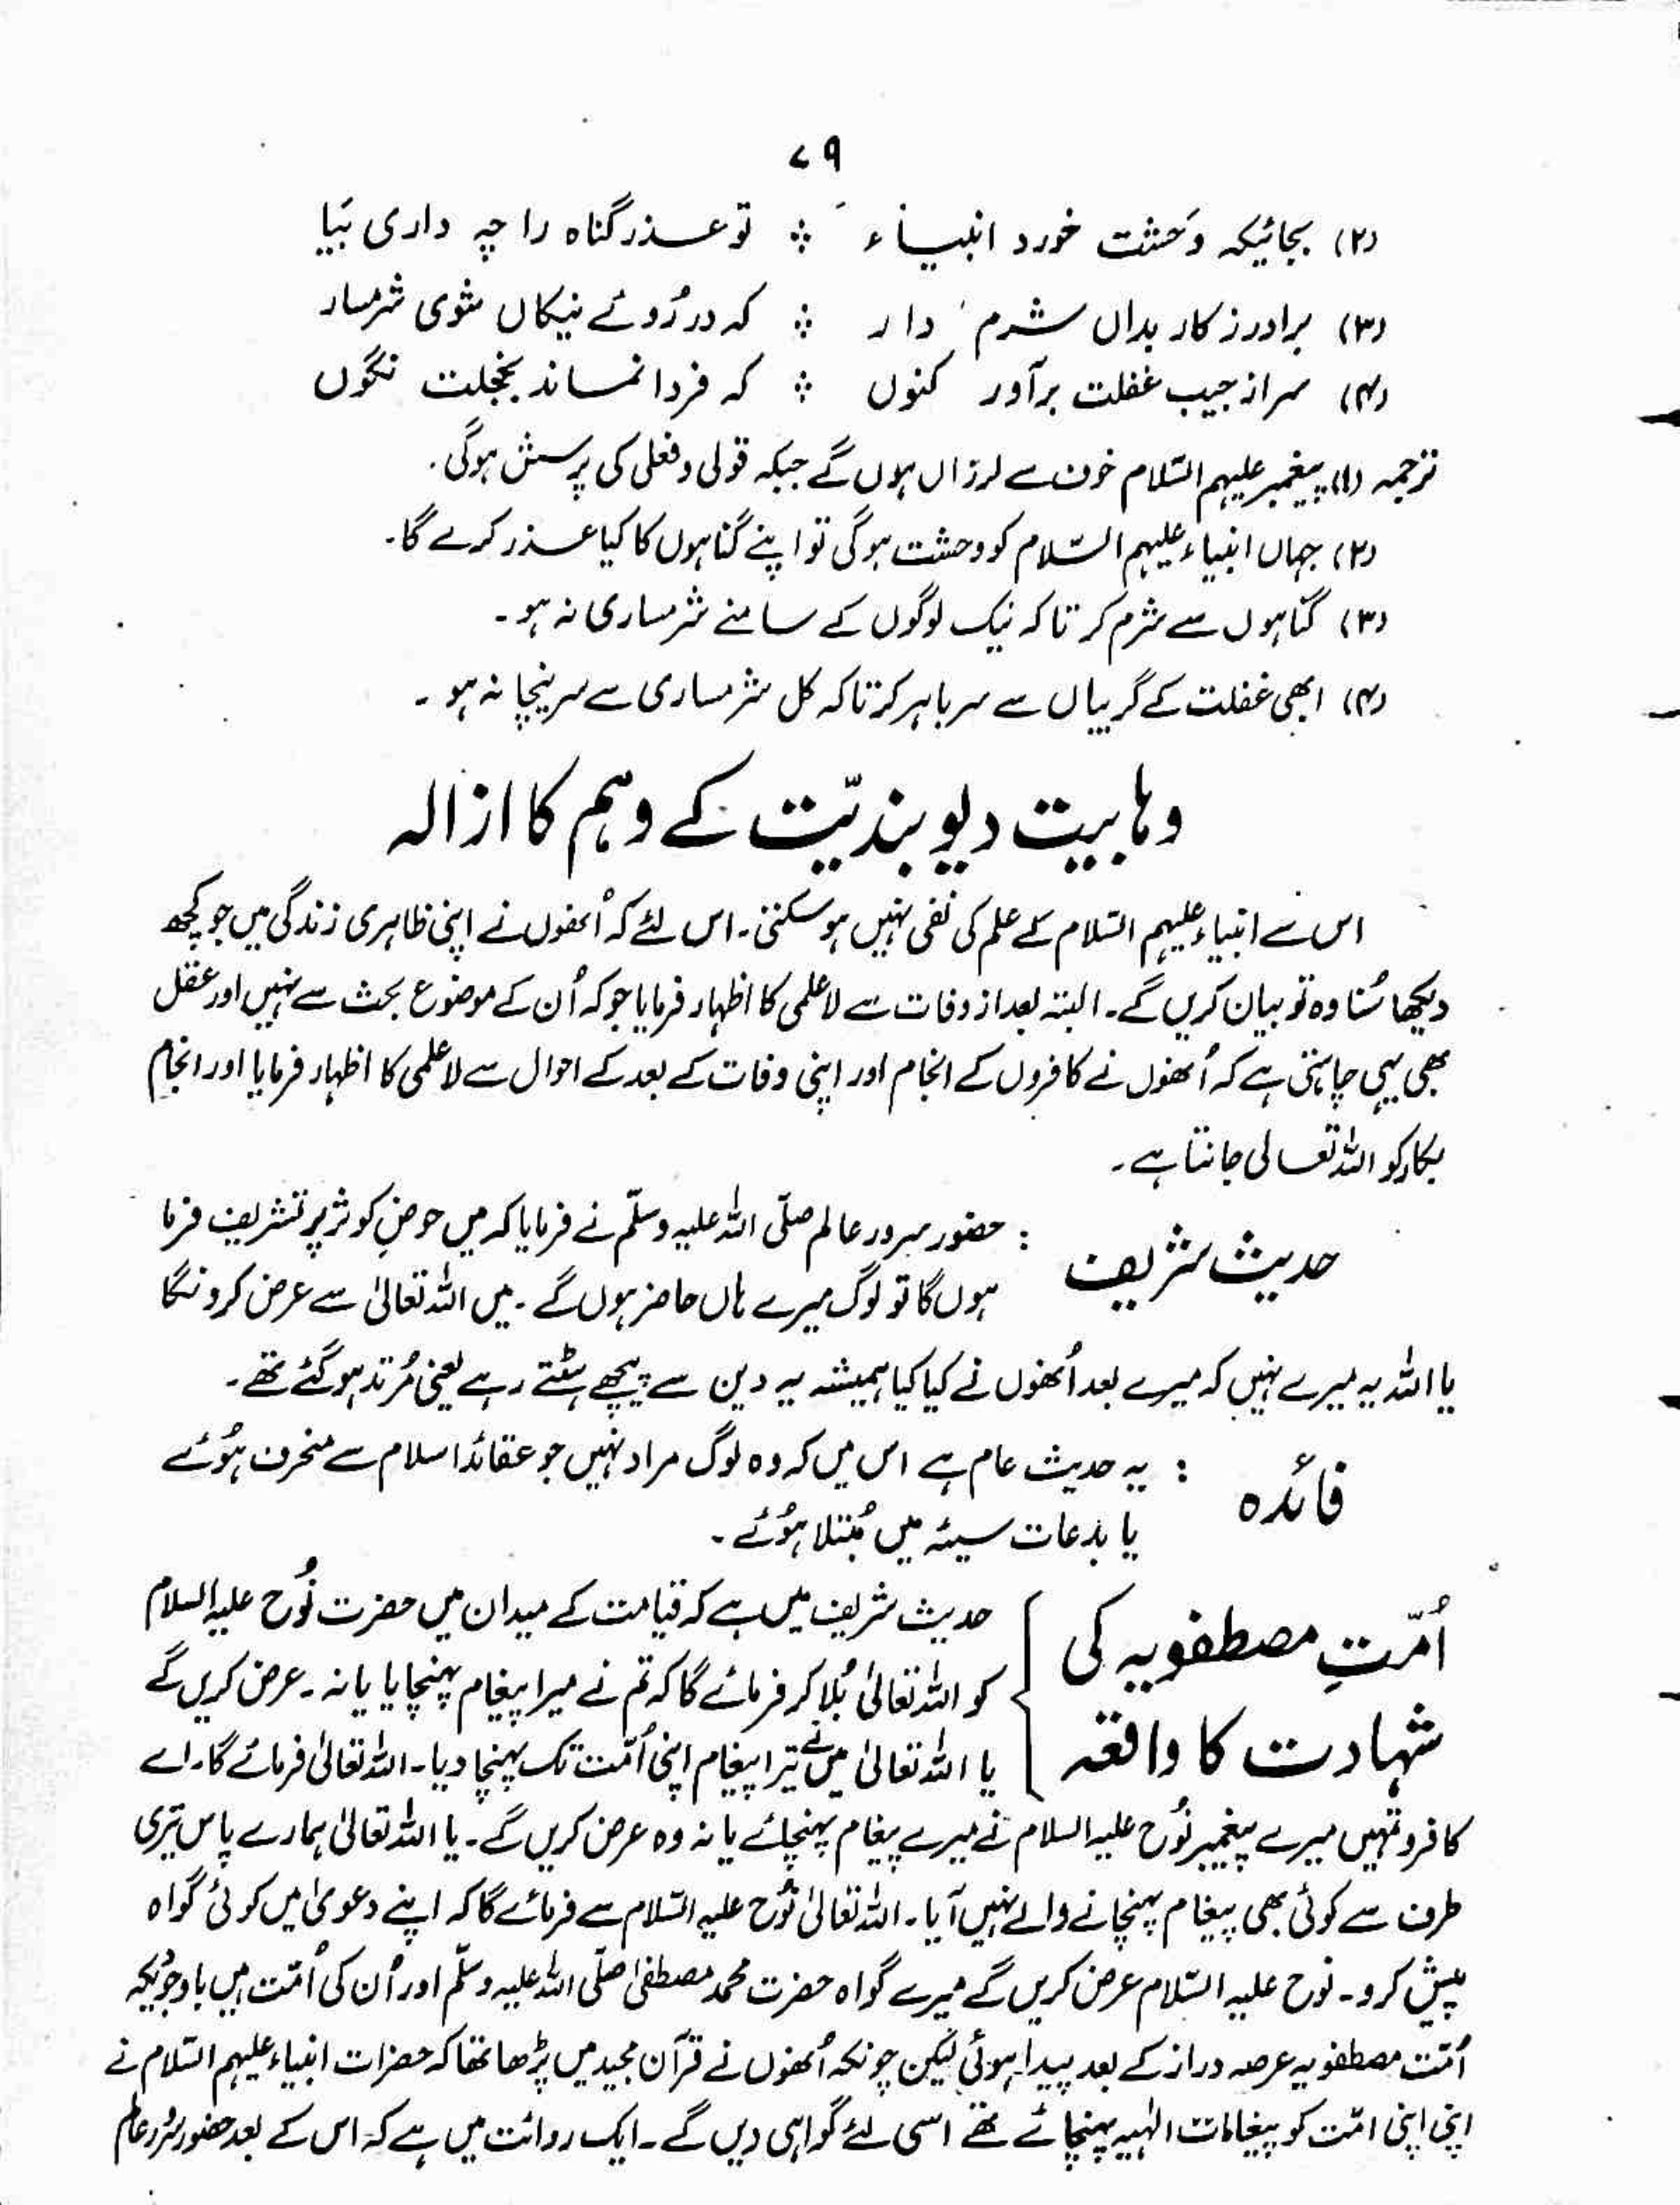 ۷۹
(۲) بجائیکہ وَحشت خورد انبیاء ؞ تو عذر گناہ را چہ داری بَیا
(۳) برادر ز کار بداں شرم دار ؞ کہ در رُوئے نیکاں شوی شرمسار
(۴) سر از جیب غفلت برآور کنوں ؞ کہ فردا نماند بخجلت نگوں
ترجمہ (۱) پیغمبر علیہم السّلام خوف سے لرزاں ہوں گے جبکہ قولی و فعلی کی پرسش ہوگی۔
(۲) جہاں انبیاء علیہم السّلام کو وحشت ہوگی تو اپنے گناہوں کا کیا عذر کرے گا۔
(۳) گناہوں سے شرم کر تاکہ نیک لوگوں کے سامنے شرمساری نہ ہو۔
(۴) ابھی غفلت کے گریباں سے سر باہر کر تاکہ کل شرمساری سے سر نیچا نہ ہو۔
وہابیت دیوبندیّت کے وہم کا ازالہ
اس سے انبیاء علیہم السّلام کے علم کی نفی نہیں ہو سکتی۔ اس لئے کہ اُنھوں نے اپنی ظاہری زندگی میں جو کچھ
دیکھا سُنا وہ تو بیان کریں گے۔ البتہ بعد از وفات سے لاعلمی کا اظہار فرمایا جو کہ اُن کے موضوع بحث سے نہیں اور عقل
بھی یہی چاہتی ہے کہ اُنھوں نے کافروں کے انجام اور اپنی وفات کے بعد کے احوال سے لاعلمی کا اظہار فرمایا اور انجام
بکار کو اللہ تعالی جانتا ہے۔
حدیث شریف : حضور سرور عالم صلّی اللہ علیہ وسلّم نے فرمایا کہ میں حوضِ کوثر پر تشریف فرما
ہوں گا تو لوگ میرے ہاں حاضر ہوں گے۔ میں اللہ تعالیٰ سے عرض کرونگا
یا اللہ یہ میرے نہیں کہ میرے بعد اُنھوں نے کیا کیا ہمیشہ یہ دین سے پیچھے ہٹتے رہے یعنی مُرتد ہو گئے تھے۔
فائدہ : یہ حدیث عام ہے اس میں کہ وہ لوگ مراد نہیں جو عقائد اسلام سے منحرف ہوُئے
یا بدعات سیئہ میں مُبتلا ہوُئے۔
اُمّتِ مصطفویہ کی
شہادت کا واقعہ
حدیث شریف میں ہے کہ قیامت کے میدان میں حضرت نُوح علیہ السلام
کو اللہ تعالیٰ بُلا کر فرمائے گا کہ تم نے میرا پیغام پہنچایا یا نہ۔ عرض کریں گے
یا اللہ تعالیٰ میں نے تیرا پیغام اپنی اُمّت تک پہنچا دیا۔ اللہ تعالیٰ فرمائے گا۔ اے
کافرو تمہیں میرے پیغمبر نُوح علیہ السلام نے میرے پیغام پہنچائے یا نہ وہ عرض کریں گے۔ یا اللہ تعالیٰ ہمارے پاس تیری
طرف سے کوئی بھی پیغام پہنچانے والے نہیں آیا۔ اللہ تعالیٰ نُوح علیہ السّلام سے فرمائے گا کہ اپنے دعویٰ میں کوئی گواہ
پیش کرو۔ نوح علیہ السّلام عرض کریں گے میرے گواہ حضرت محمد مصطفیٰ صلّی اللہ علیہ وسلّم اور اُن کی اُمّت ہیں باوجودیکہ
اُمّت مصطفویہ عرصہ دراز کے بعد پیدا ہوئی لیکن چونکہ اُنھوں نے قرآن مجید میں پڑھا تھا کہ حضرات انبیاء علیہم السّلام نے
اپنی اپنی امّت کو پیغامات الٰہیہ پہنچائے تھے اسی لئے گواہی دیں گے۔ ایک روائت میں ہے کہ اس کے بعد حضور سرور عالم